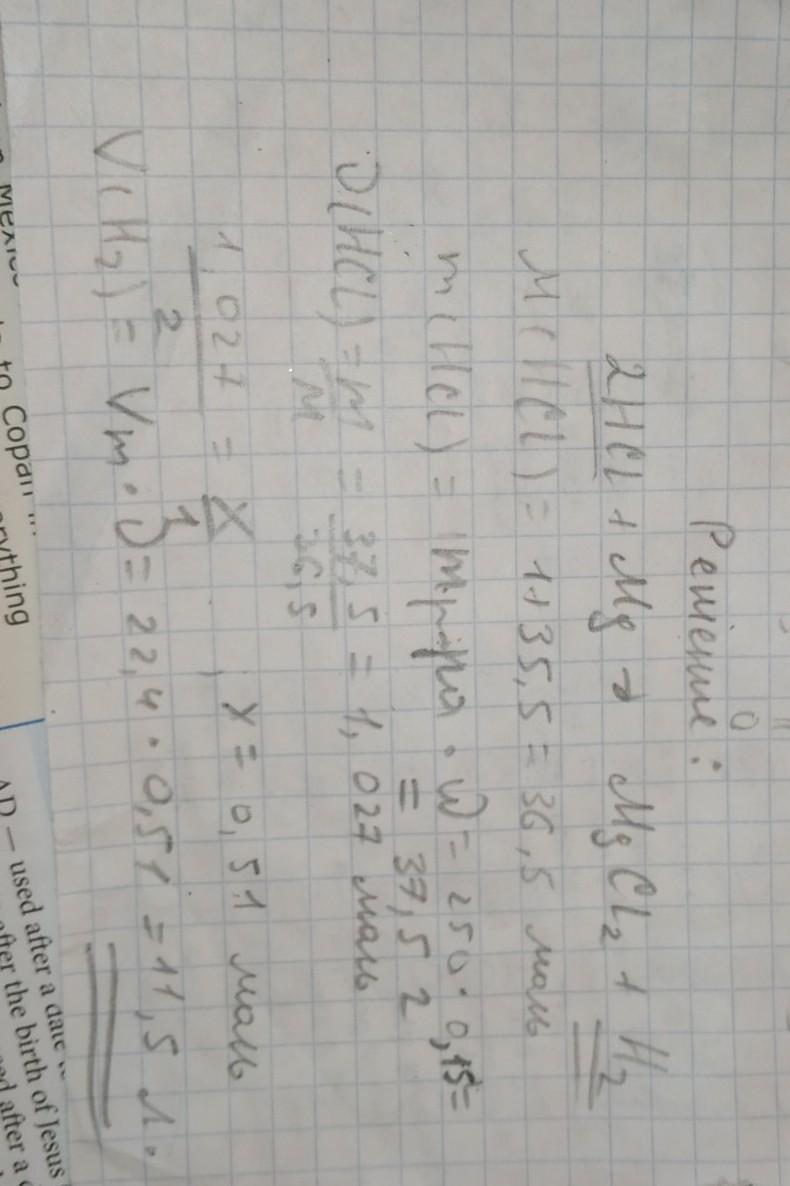 Решение:
2HCl + Mg → MgCl₂ + H₂
M(HCl) = 1+35,5 = 36,5 моль
m(HCl) = mр-ра · W = 250 · 0,15 =
= 37,5 г
ν(HCl) = m/M = 37,5/36,5 = 1,027 моль
1,027/2 = X/1, X = 0,51 моль
V(H₂) = Vm · ν = 22,4 · 0,51 = 11,5 л.
to Copan
erything
AD – used after a date
after the birth of Jesus
after a